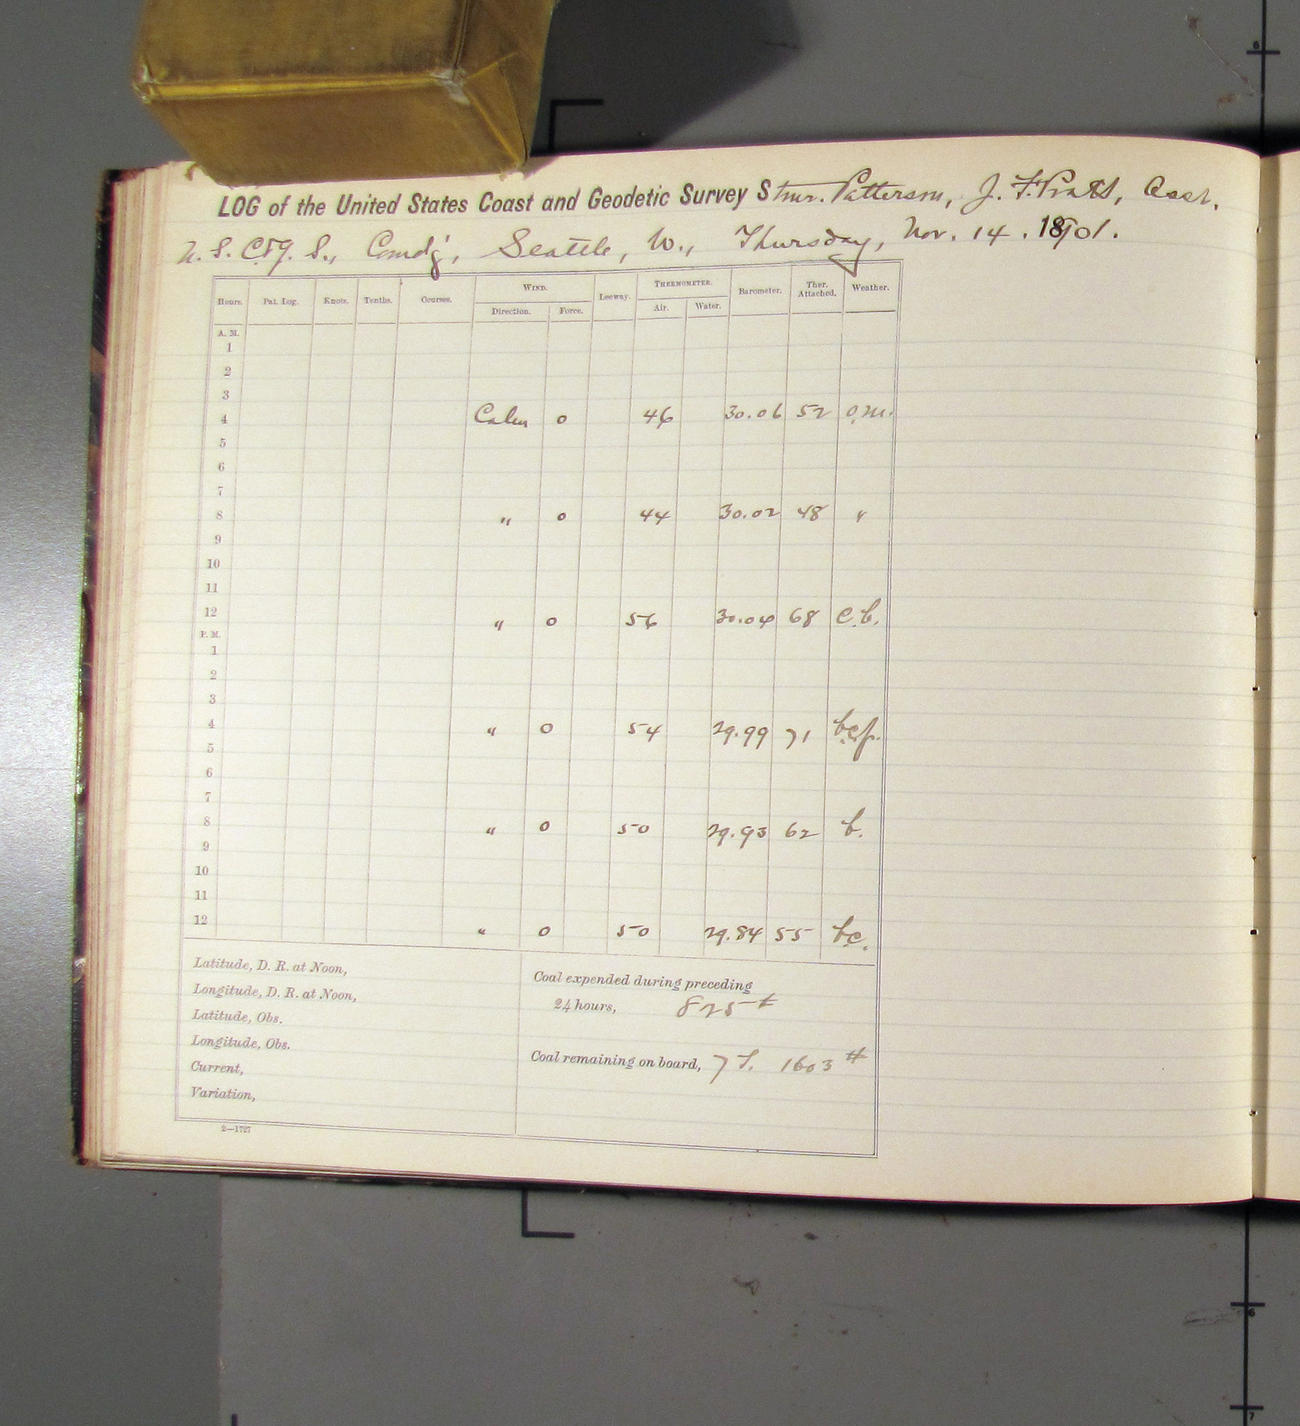 LOG of the United States Coast and Geodetic Survey Stmr. Patterson, J. F. Pratt, Asst.
U. S. C & G. S., Comd'g, Seattle, W., Thursday, Nov. 14. 1901.
Hours. Pat. Log. Knots. Tenths. Courses. WIND. Leeway. THERMOMETER. Barometer. Ther. Attached. Weather.
Direction. Force. Air. Water.
A. M.
1
2
3
4 Calm 0 46 30.06 52 o,m.
5
6
7
8 " 0 44 30.02 48 "
9
10
11
12 " 0 56 30.04 68 c.b.
P. M.
1
2
3
4 " 0 54 29.99 71 b.c.p.
5
6
7
8 " 0 50 29.93 62 b.
9
10
11
12 " 0 50 29.84 55 b.c.
Latitude, D. R. at Noon,
Longitude, D. R. at Noon,
Latitude, Obs.
Longitude, Obs.
Current,
Variation,
Coal expended during preceding
24 hours, 825 #
Coal remaining on board, 7 T. 1603 #
2—1727
6
6
7